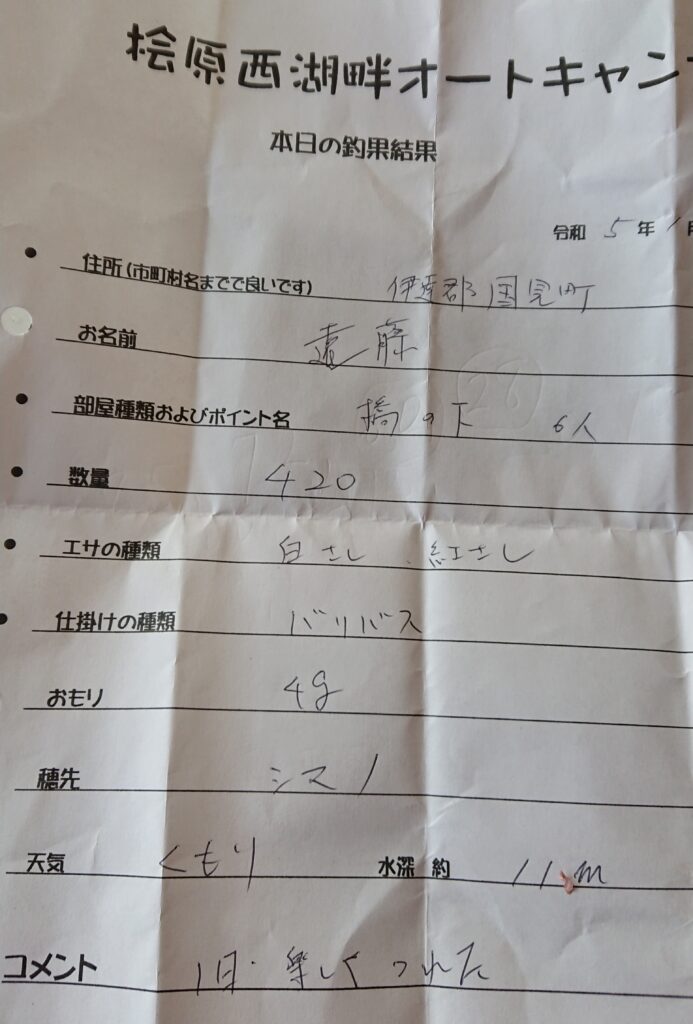 桧原西湖畔オートキャン
本日の釣果結果
令和 5年 1月
住所(市町村名までで良いです) 伊達郡国見町
お名前 遠藤
部屋種類およびポイント名 橋の下 6人
数量 420
エサの種類 白さし、紅さし
仕掛けの種類 バリバス
おもり 4g
穂先 シマノ
天気 くもり 水深 約 11m
コメント 1日.楽しくつれた